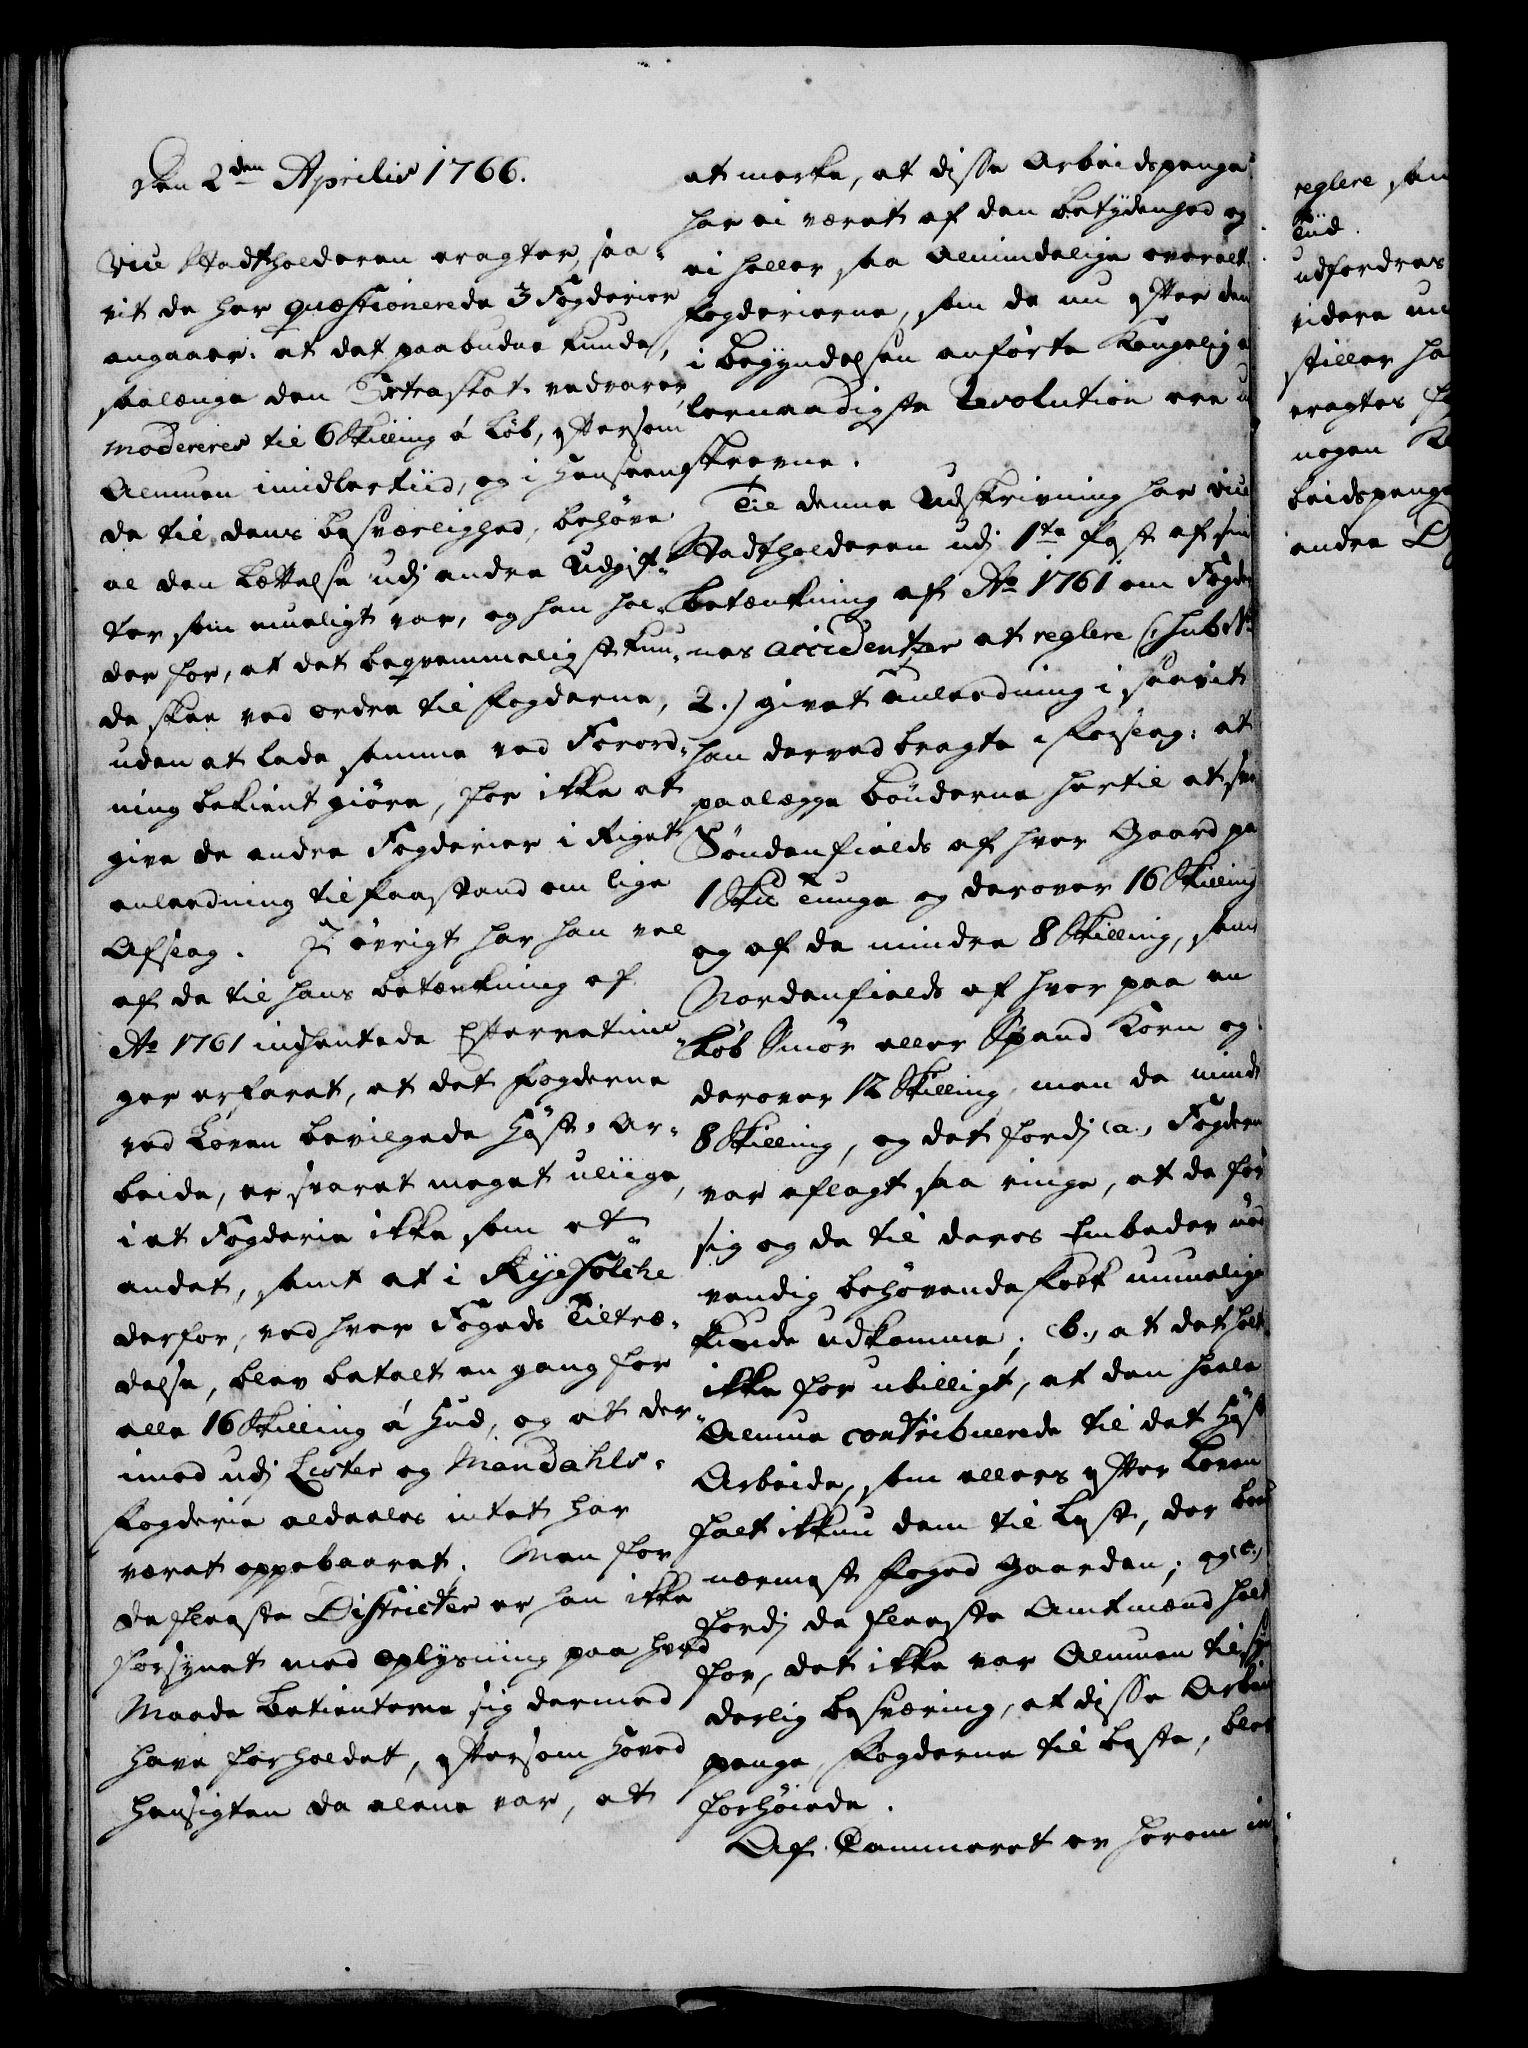 Den 2den Aprilis 1766.
Vice Stadtholderen eragter, saa-
vit de her qvæstionerede 3 Fogderier
angaaer: at det paabudne kunde,
saalænge den Extraskat vedvarer
modereres til 6 Skilling á Løb, eftersom
Almuen imidlertiid, og i Henseen-
de til dens besværlighed, behøve
al den Lettelse udj andre Udgif-
ter som mueligt var, og han hol-
der for, at det beqvemmeligst kun-
de skee ved ordre til Fogderne,
uden at lade samme ved Forord-
ning bekient giöre, for ikke at
give de andre Fogderier i Riget
anleedning til Paastand om lige
Afslag. I øvrigt har han vel
af de til hans betænkning af
Ao 1761 indhentede Efterretnin-
ger erfaret, at det Fogderne
ved Loven bevilgede Høst-Ar-
beide, er svaret meget uliige,
i et Fogderie ikke som et
andet, samt at i Ryefölche
derfor, ved hver Fogeds Tiltræ-
delse, blev betalt en gang for
alle 16 Skilling á Hud, og at der-
imod udj Lister og Mandahls-
Fogderie aldeeles intet har
været oppebaaret; Men for
de fleeste Districter er han ikke
forsynet med Oplysning paa hvad
Maade Betienterne sig dermed
have forholdet, eftersom Hoved
Hensigten da alene var, at
at merke, at disse Arbeidspenge
har ei været af den betydenhed og
ei heller saa Almindelige overalt
Fogderierne, som de nu efter den
i Begyndelsen anførte Kongelig
lernaadigste Resolution ere
skrevne.
Til denne Udskrivning har Vice
Stadtholderen udj 1te Post af sin
betænkning af Ao 1761 om Fogder-
nes accidentzer at reglere (: sub No
2.) givet anleedning i saavit
han derved bragte i Forslag: at
paalægge bönderne hertil at
Söndenfields af hver Gaard paa
1 Skil Tunge og derover 16 Skilling
og af de mindre 8 Skilling, samt
Nordenfields af hver paa en
Løb Smör eller Spand Korn og
derover 12 Skilling, men de mind
8 Skilling, og det fordj (a.) Fogderne
var aflagt saa ringe, at de for
sig og de til deres Embeder nød
vendig behøvende Folk umuelig
kunde udkomme; (b.) at det holt
ikke for ubilligt, at den heele
Almue contribuerede til det Høst
Arbeide, som ellers efter Loven
falt ikkun dem til Last, der boe
nærmest Foged Gaarden; og (c.)
fordj de fleeste Amtmænd holt
for, det ikke var Almuen til
derlig besværing, at disse Arbeids
penge, Fogderne til beste, blev
forhöiede.
Af Cammeret er herom in
reglere
Tiid.
udfordres
videre
stiller
eragtes
nogen
beidspenge
andre